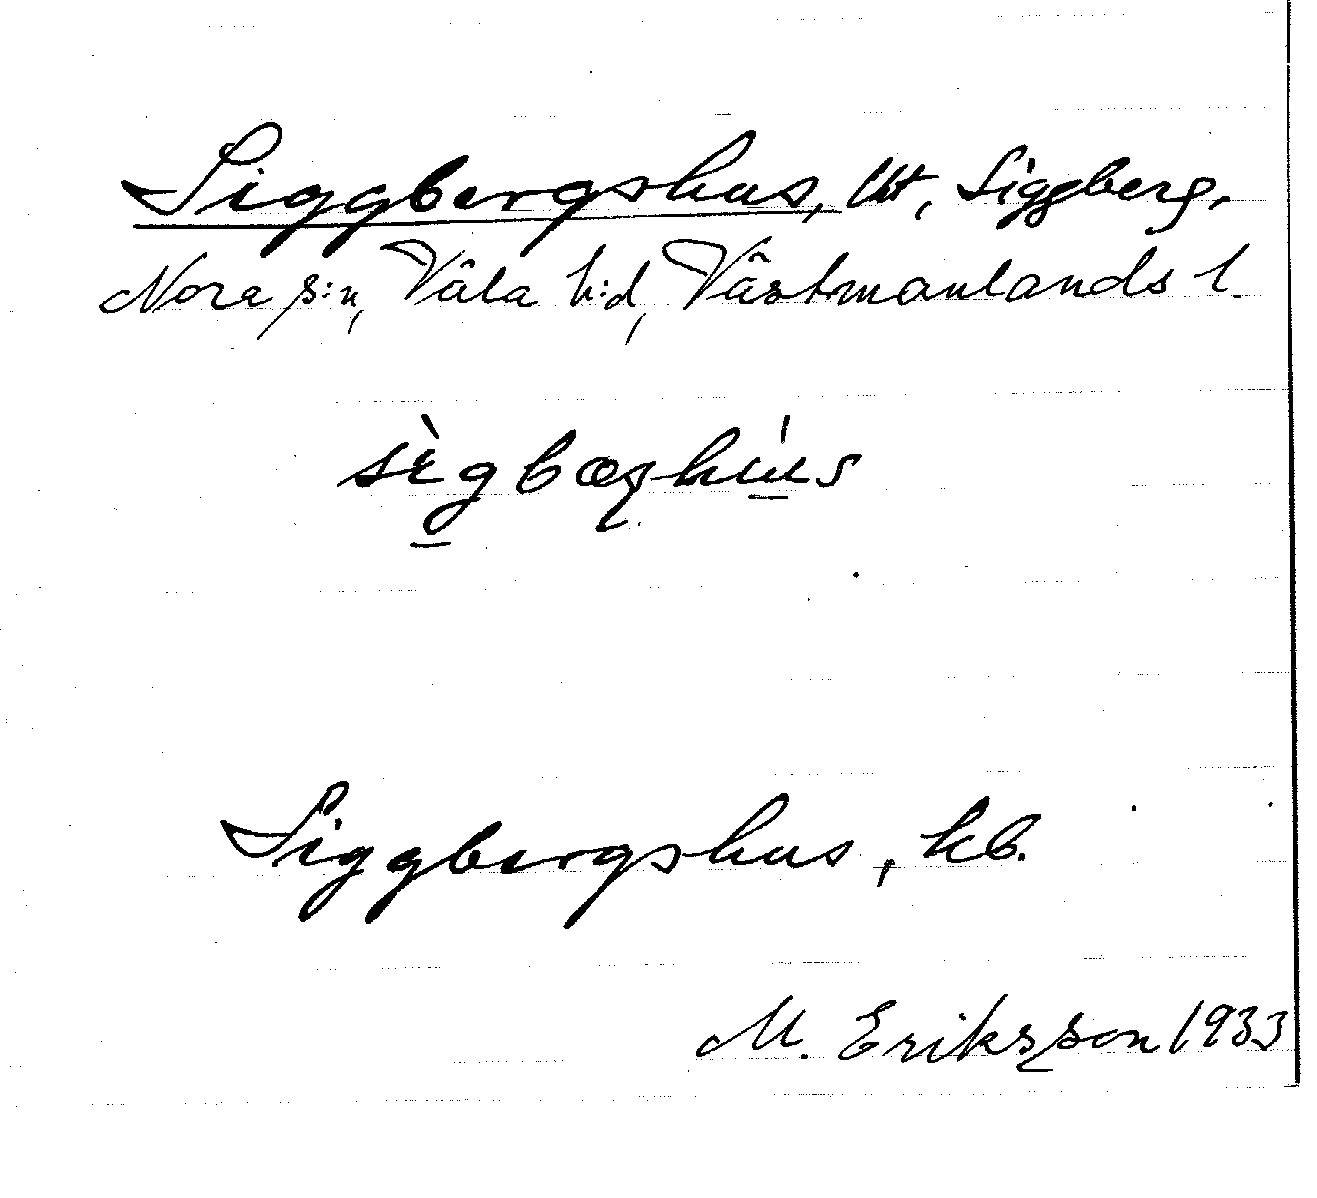 Siggbergshus, lht, Siggberg,
Nora s:n, Våla h:d, Västmanlands l.
Siggbergshus, kb.
M. Eriksson 1933